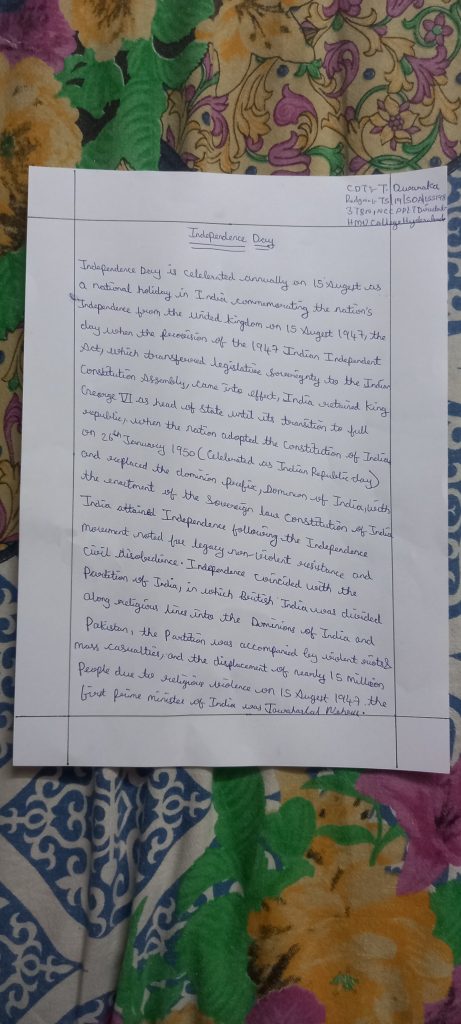 CDT:- T. Dwaraka
Independence Day
Independence Day is celebrated annually on 15 August as
a national holiday in India commemorating the nation's
Independence from the united kingdom on 15 August 1947, the
day when the provision of the 1947 Indian Independent
Act, which transferred legislative sovereignty to the Indian
Constitution Assembly, came into effect, India retained King
George VI as head of state until its transition to full
republic, when the nation adopted the Constitution of India
on 26th January 1950 (Celebrated as Indian Republic day)
and replaced the dominion prefix, Dominion of India, with
the enactment of the Sovereign law Constitution of India
India attained Independence following the Independence
Movement noted for legacy non-violent resistance and
Civil disobedience. Independence coincided with the
Partition of India, in which British India was divided
along religious lines into the Dominions of India and
Pakistan, the Partition was accompanied by violent riots &
mass casualties, and the displacement of nearly 15 million
People due to religious violence on 15 August 1947. the
first prime minister of India was Jawaharlal Nehru.